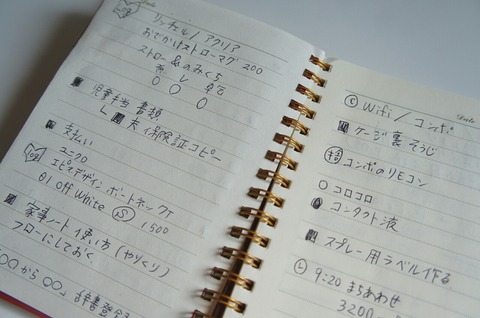 リッチェル / アクリア
おでかけストローマグ 200
ストロー & のみくち
児童手当 書類
└ 夫 保険証コピー
支払い
ユニクロ
エピスデザイン ボートネックT
01 off White Ⓢ 1500
家事ノート 使い方 (やりくり)
フローにしておく
○○から○○」
Date
Ⓒ Wifi / コンポ
ケージ裏そうじ
コンポのリモコン
○ コロコロ
コンタクト液
スプレー用ラベル作る
Ⓛ 9:20 まちあわせ
3200